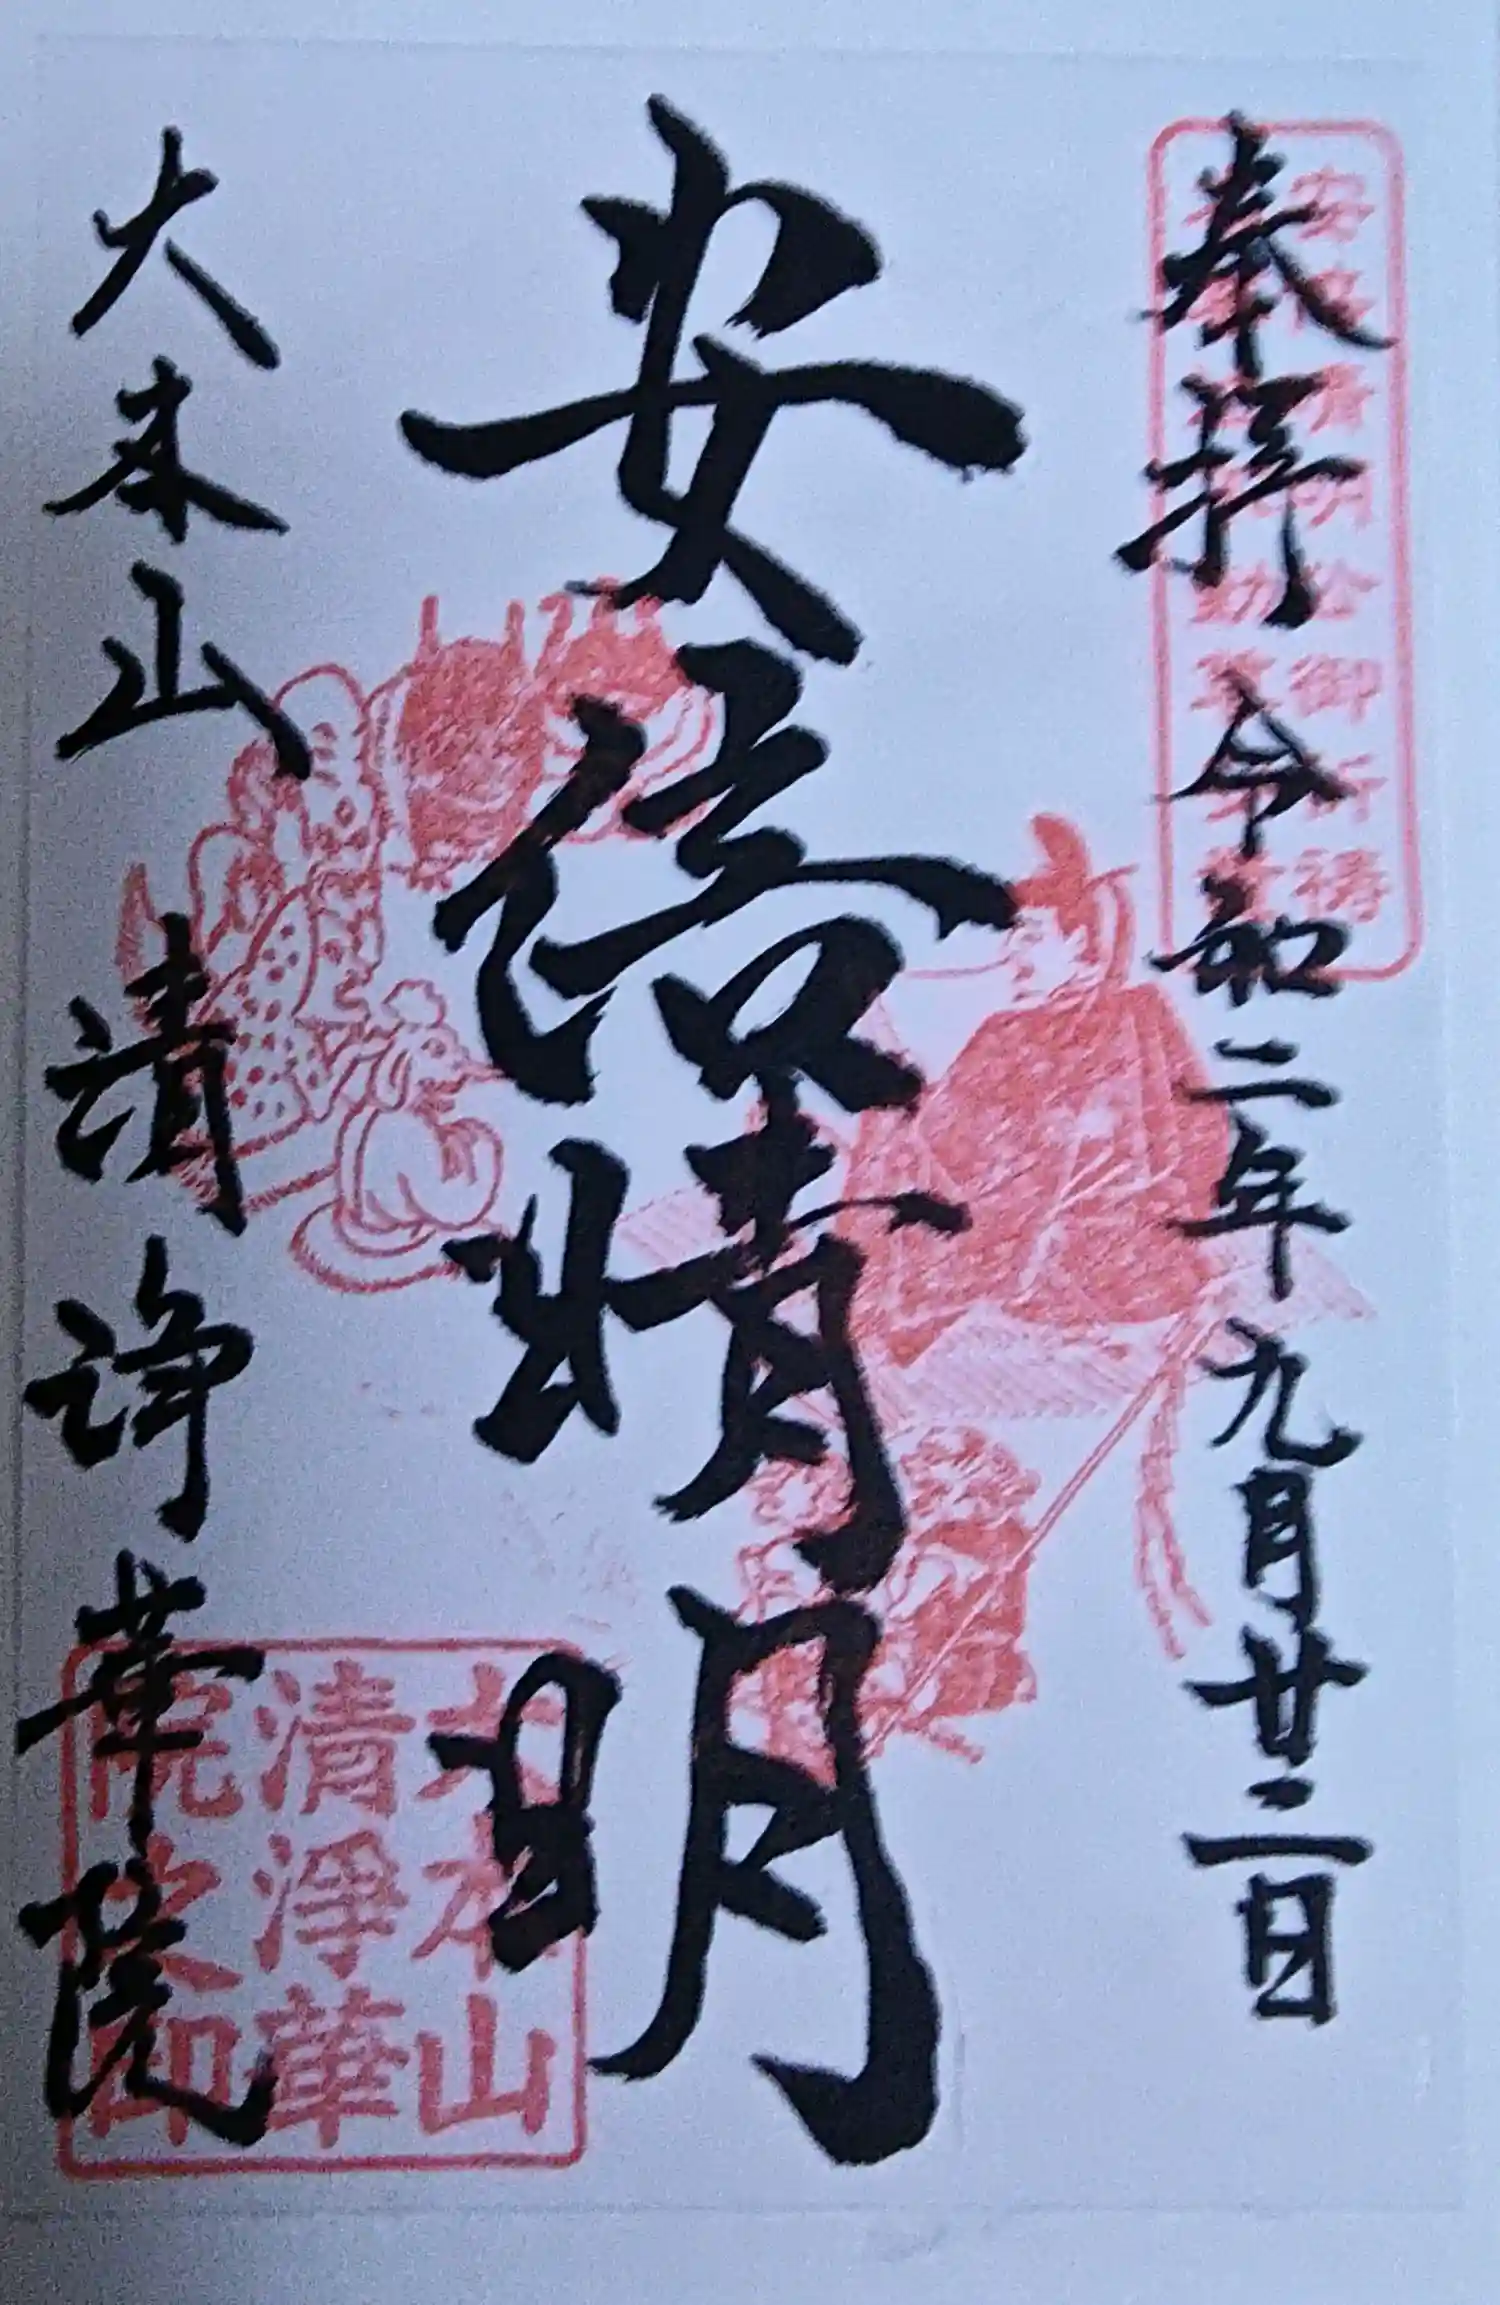 奉拝 令和二年九月廿二日
安倍晴明
大本山 清浄華院
安倍晴明公御祈祷
大本山
清淨華
院之印